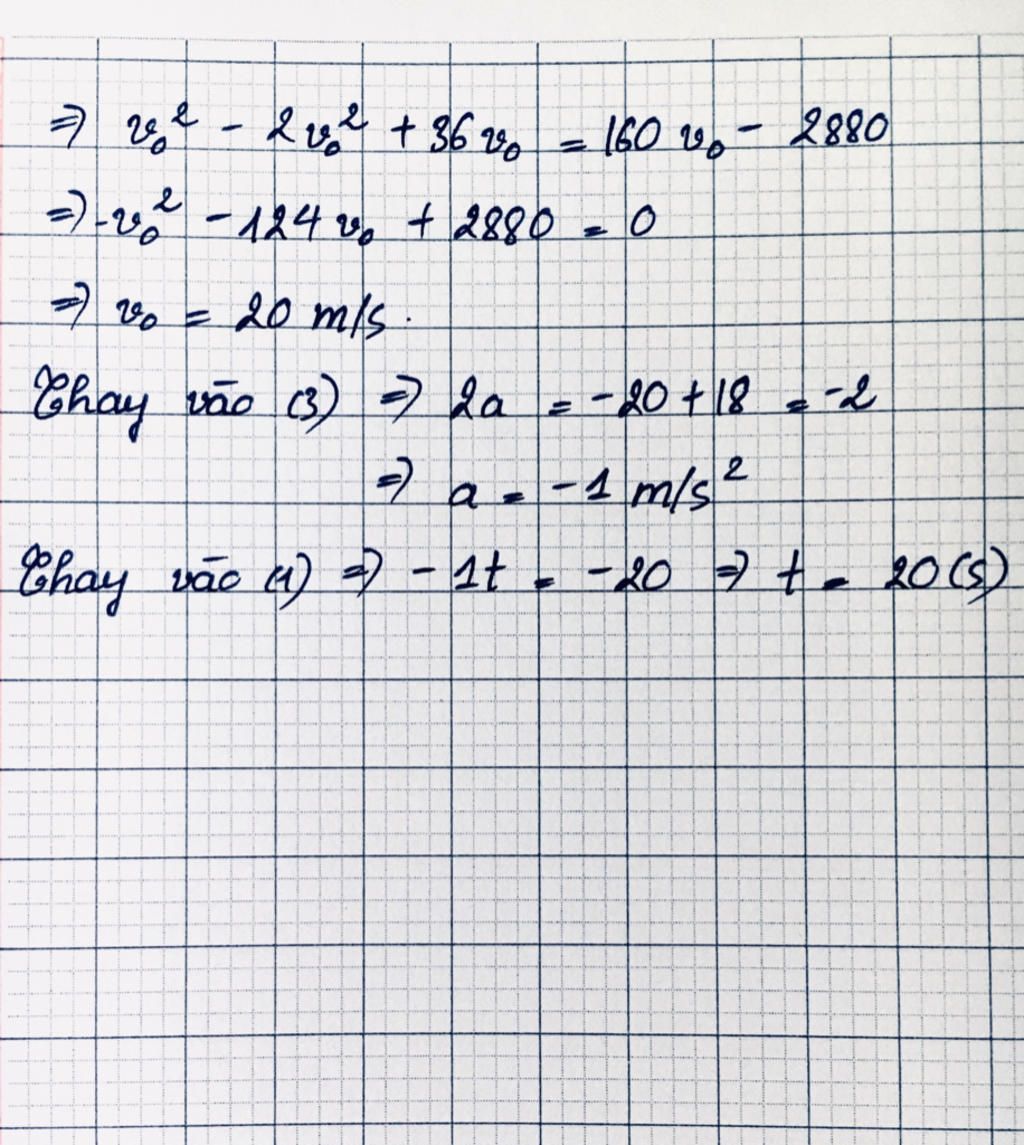 ⇒ v₀² - 2v₀² + 36v₀ = 160v₀ - 2880
⇒ -v₀² - 124v₀ + 2880 = 0
⇒ v₀ = 20 m/s.
Thay vào (3) ⇒ 2a = -20 + 18 = -2
⇒ a = -1 m/s²
Thay vào (1) ⇒ -1t = -20 ⇒ t = 20(s)